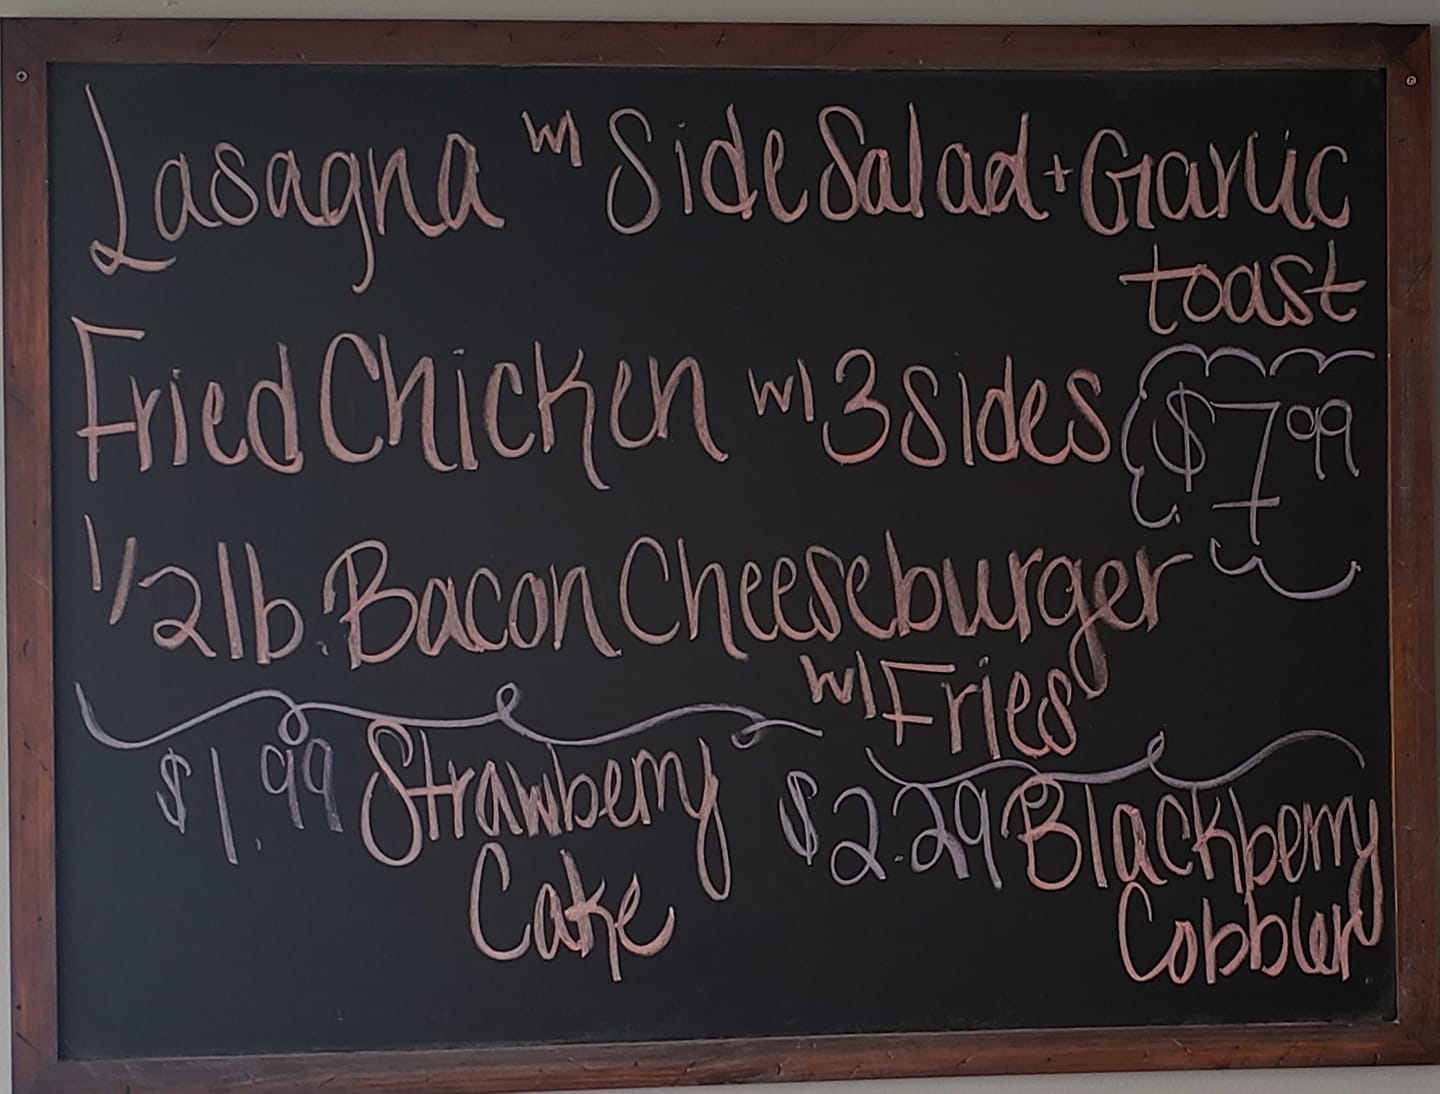 Lasagna w/ Side Salad + Garlic
toast
Fried Chicken w/ 3 sides
$7.99
1/2 lb. Bacon Cheeseburger
w/ Fries
$1.99 Strawberry
Cake
$2.29 Blackberry
Cobbler